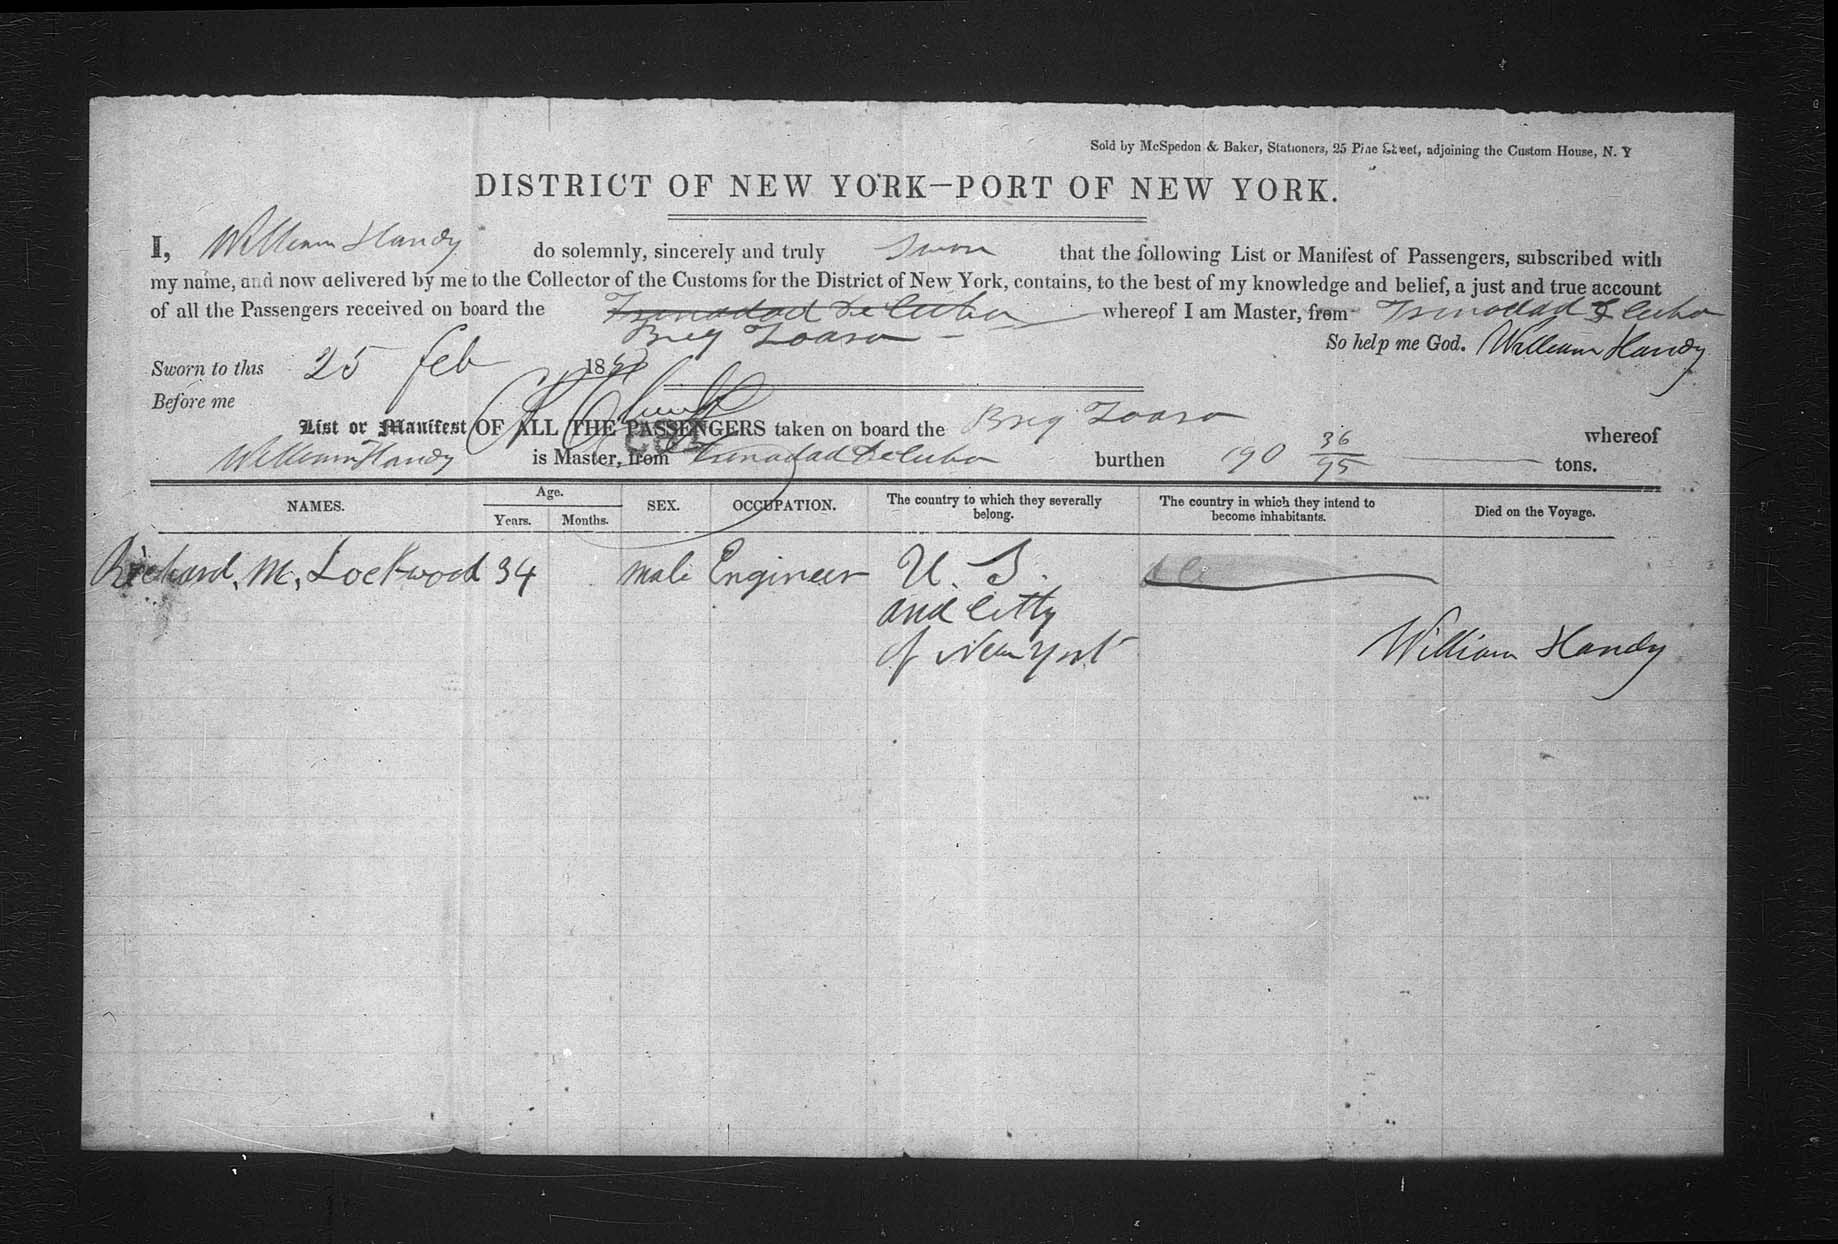 Sold by McSpedon & Baker, Stationers, 25 Pine Street, adjoining the Custom House, N. Y
DISTRICT OF NEW YORK—PORT OF NEW YORK.
I, William Handy do solemnly, sincerely and truly swon that the following List or Manifest of Passengers, subscribed with
my name, and now delivered by me to the Collector of the Customs for the District of New York, contains, to the best of my knowledge and belief, a just and true account
of all the Passengers received on board the Trinadad De Cuba whereof I am Master, from Trinadad De Cuba
Brig
So help me God. William Handy
Sworn to this 25 feb 18
Before me
List or Manifest OF ALL THE PASSENGERS taken on board the Brig
whereof
William Handy is Master, from Trinadad De Cuba burthen 190 36/95 tons.
NAMES. Age. Years. Months. SEX. OCCUPATION. The country to which they severally belong. The country in which they intend to become inhabitants. Died on the Voyage.
Richard, M, Lockwood 34 male Engineer U. S.
and Citty
of New York
William Handy